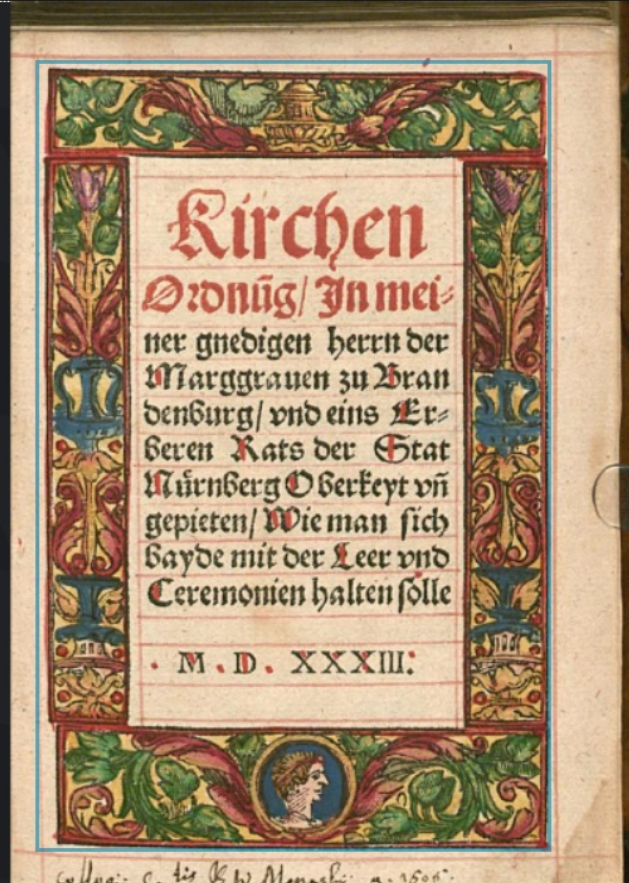 Kirchen
Ordnūg/ In mei⸗
ner gnedigen herrn der
Marggrauen zu Bran
denburg/ vnd eins Er⸗
beren Rats der Stat
Nürnberg Oberkeyt vn̄
gepieten/ Wie man sich
bayde mit der Leer vnd
Ceremonien halten sölle
. M . D . XXXIII: